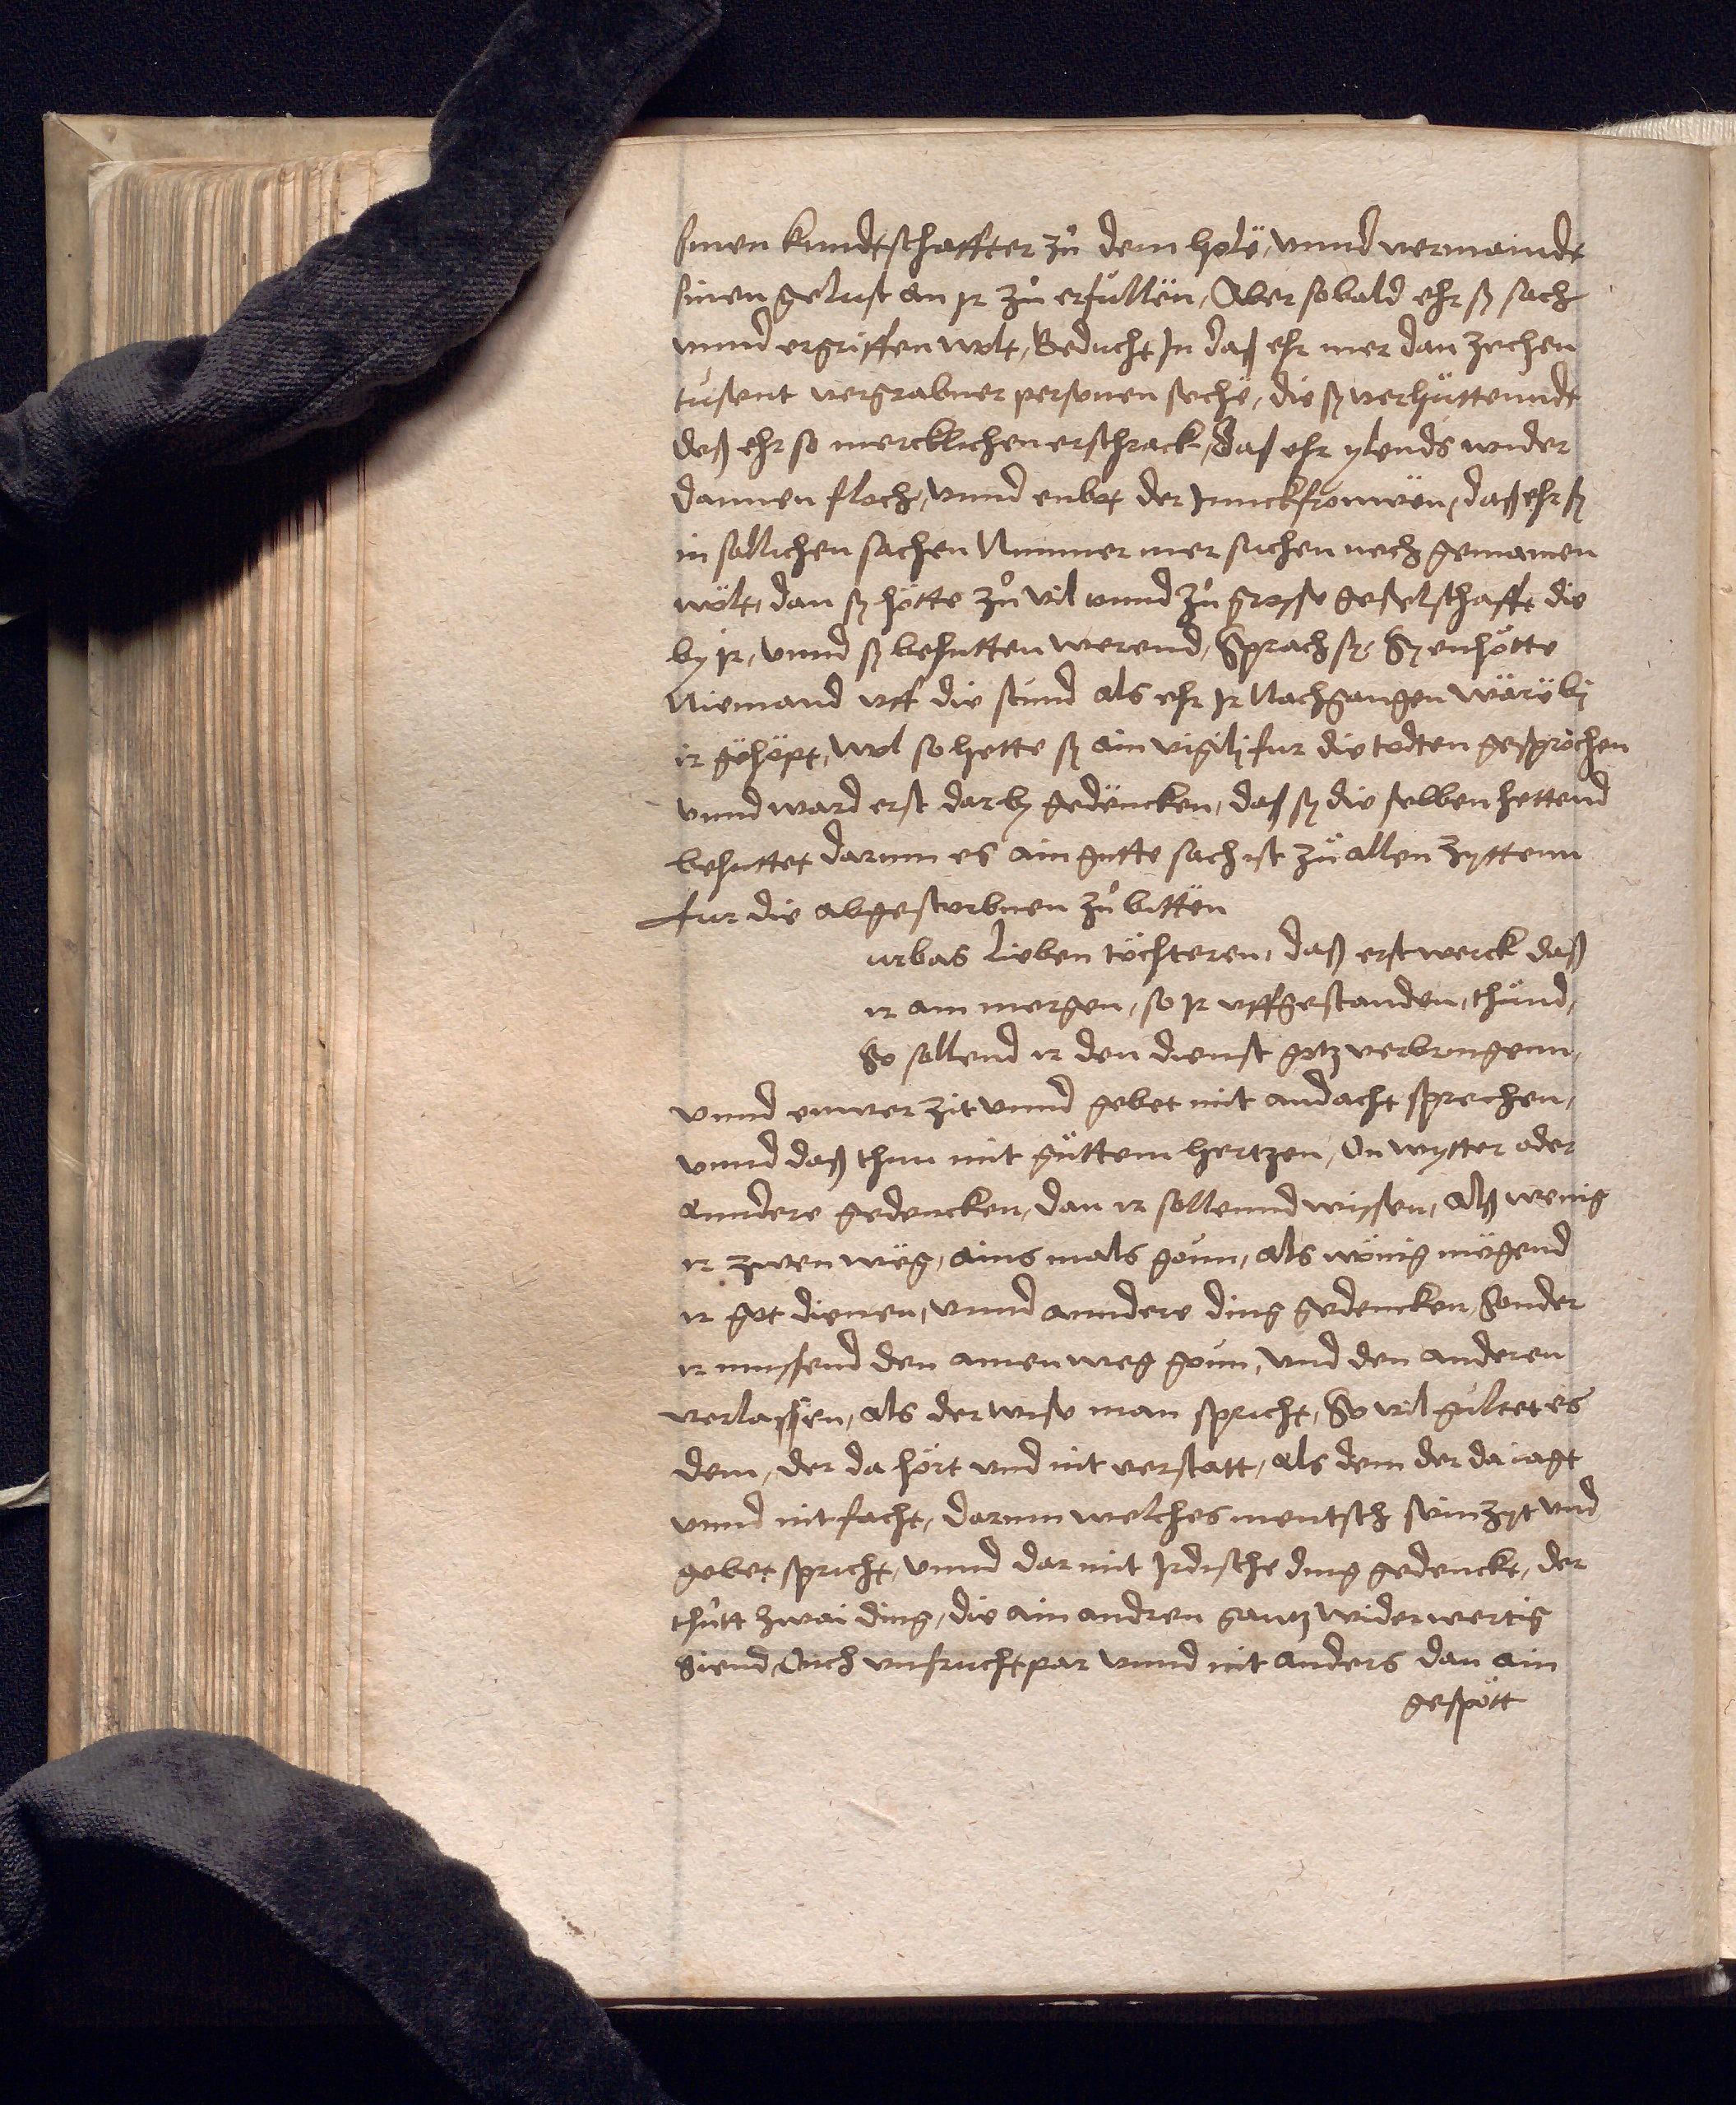 sinen kundtschaffter zů dem holtz, vnnd vermaindt
sinen gelust an jr zů erfüllen, Aber sobald ehr sy sach
vnnd ergriffen wolt, Beducht Jn daß ehr mer dan zechen
tusent vergrabner personen seche, die sy verhüttenndt
deß ehr so mercklichen erschrack, daß ehr ylends wider
dannen floch, vnnd enbot der Junckfrouwen, daß ehr sy
in sollichen sachen Nimmer mer suchen noch gemainen
wölt, dan sy hötte zů vil vnnd zů grosse geselschafft die
by jr, vnnd sy behutten werend, Sprach sy, Sy enhötte
Niemand vff die stund als ehr Jr Nachgangen wäre by
ir gehöpt, wol so hette sy ain vigily fur die todten gesprochen
vnnd ward erst darby gedencken, daß sy die selben hettend
behuttet darum es ain gutte sach ist zů allen zyttenn
fur die abgestorbnen zů bitten
urbas lieben töchteren, daß erst werck daß
ir am morgen, so jr vffgestanden, thůnd,
So sollend ir den dienst gotz verbringenn,
vnnd euwer zit vnnd gebet mit andacht sprechen,
vnnd daß thun mit guttem hertzen, On wytter oder
anndere gedencken, dan ir sollennd wissen, Alß wenig
ir zwen weg, ains mals goun, als wönig mögend
ir got dienen, vnnd anndere ding gedencken, Sonder
ir mussend den ainen weg goun, vnd den anderen
verlassen, als der wise man spricht, So vil gultet es
dem, der da hört vnd nit verstatt, als dem der da iagt
vnnd nit facht, darum welches mentsch sein zyt vnd
gebet spricht, vnnd dar mit Jrdische ding gedenckt, der
thůtt zwai ding, die ain andren gantz widerwertig
Siend, Ouch vnfruchtpar vnnd nit anders dan ain
gespött